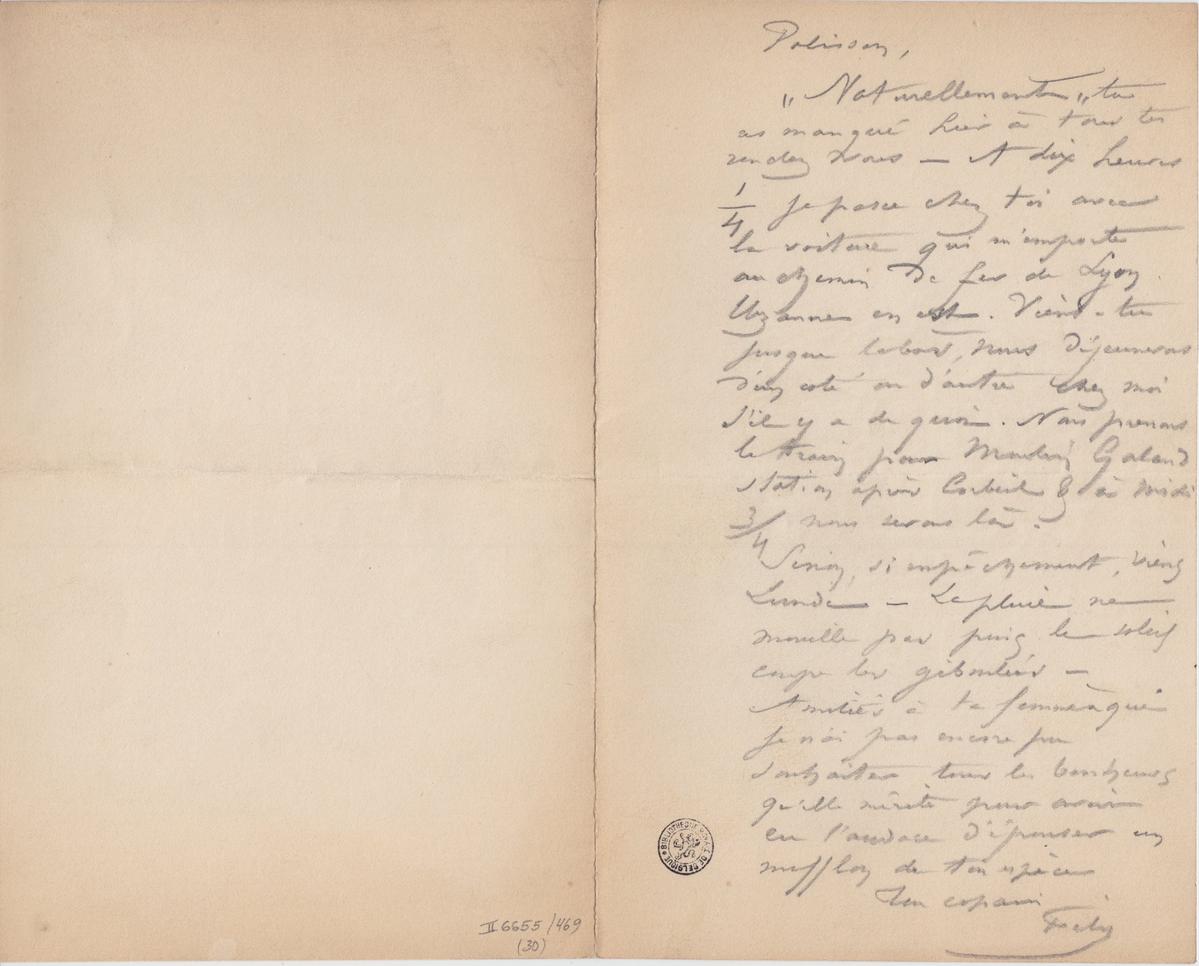 Polisson,
„ Naturellement „ tu
as manqué hier à tous tes
rendez vous — A dix heures
1/4 je passe chez toi avec
la voiture qui m'emporte
au chemin de fer de Lyon.
Uzanne en est. Viens-tu
jusque là bas, nous déjeunerons
d'un coté ou d'autre chez moi
s'il y a de quoi. Nous prenons
le train pour Moulin Galand
station après Corbeil & à midi
3/4 nous serons là.
Sinon, si empêchement, viens
Lundi — La pluie ne
mouille pas puisq. le soleil
coupe les giboulées —
Amitiés à ta femme à qui
je n'ai pas encore pu
souhaiter tous les bonheurs
qu'elle mérite pour avoir
eu l'audace d'épouser un
mufflon de ton espèce
Ton copain
Fély
BIBLIOTHEQUE ROYALE DE BELGIQUE
II 6655 /469
(30)